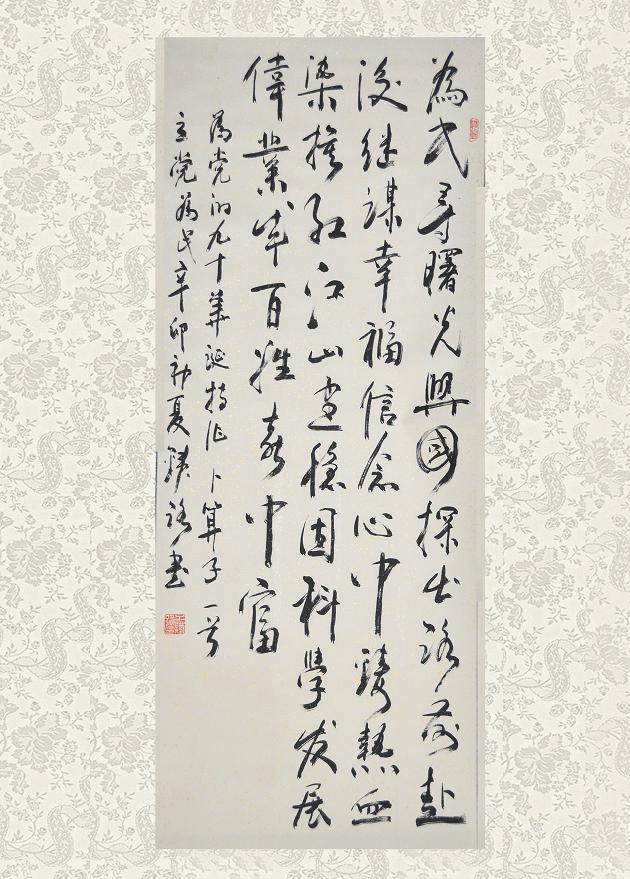 為民尋曙光興國探出路前赴
後继謀幸福信念心中鑄熱血
染旗红江山穩固科學发展
偉業成百姓喜中富
為党的九十華誕特作卜算子一首
立党為民辛卯初夏路書